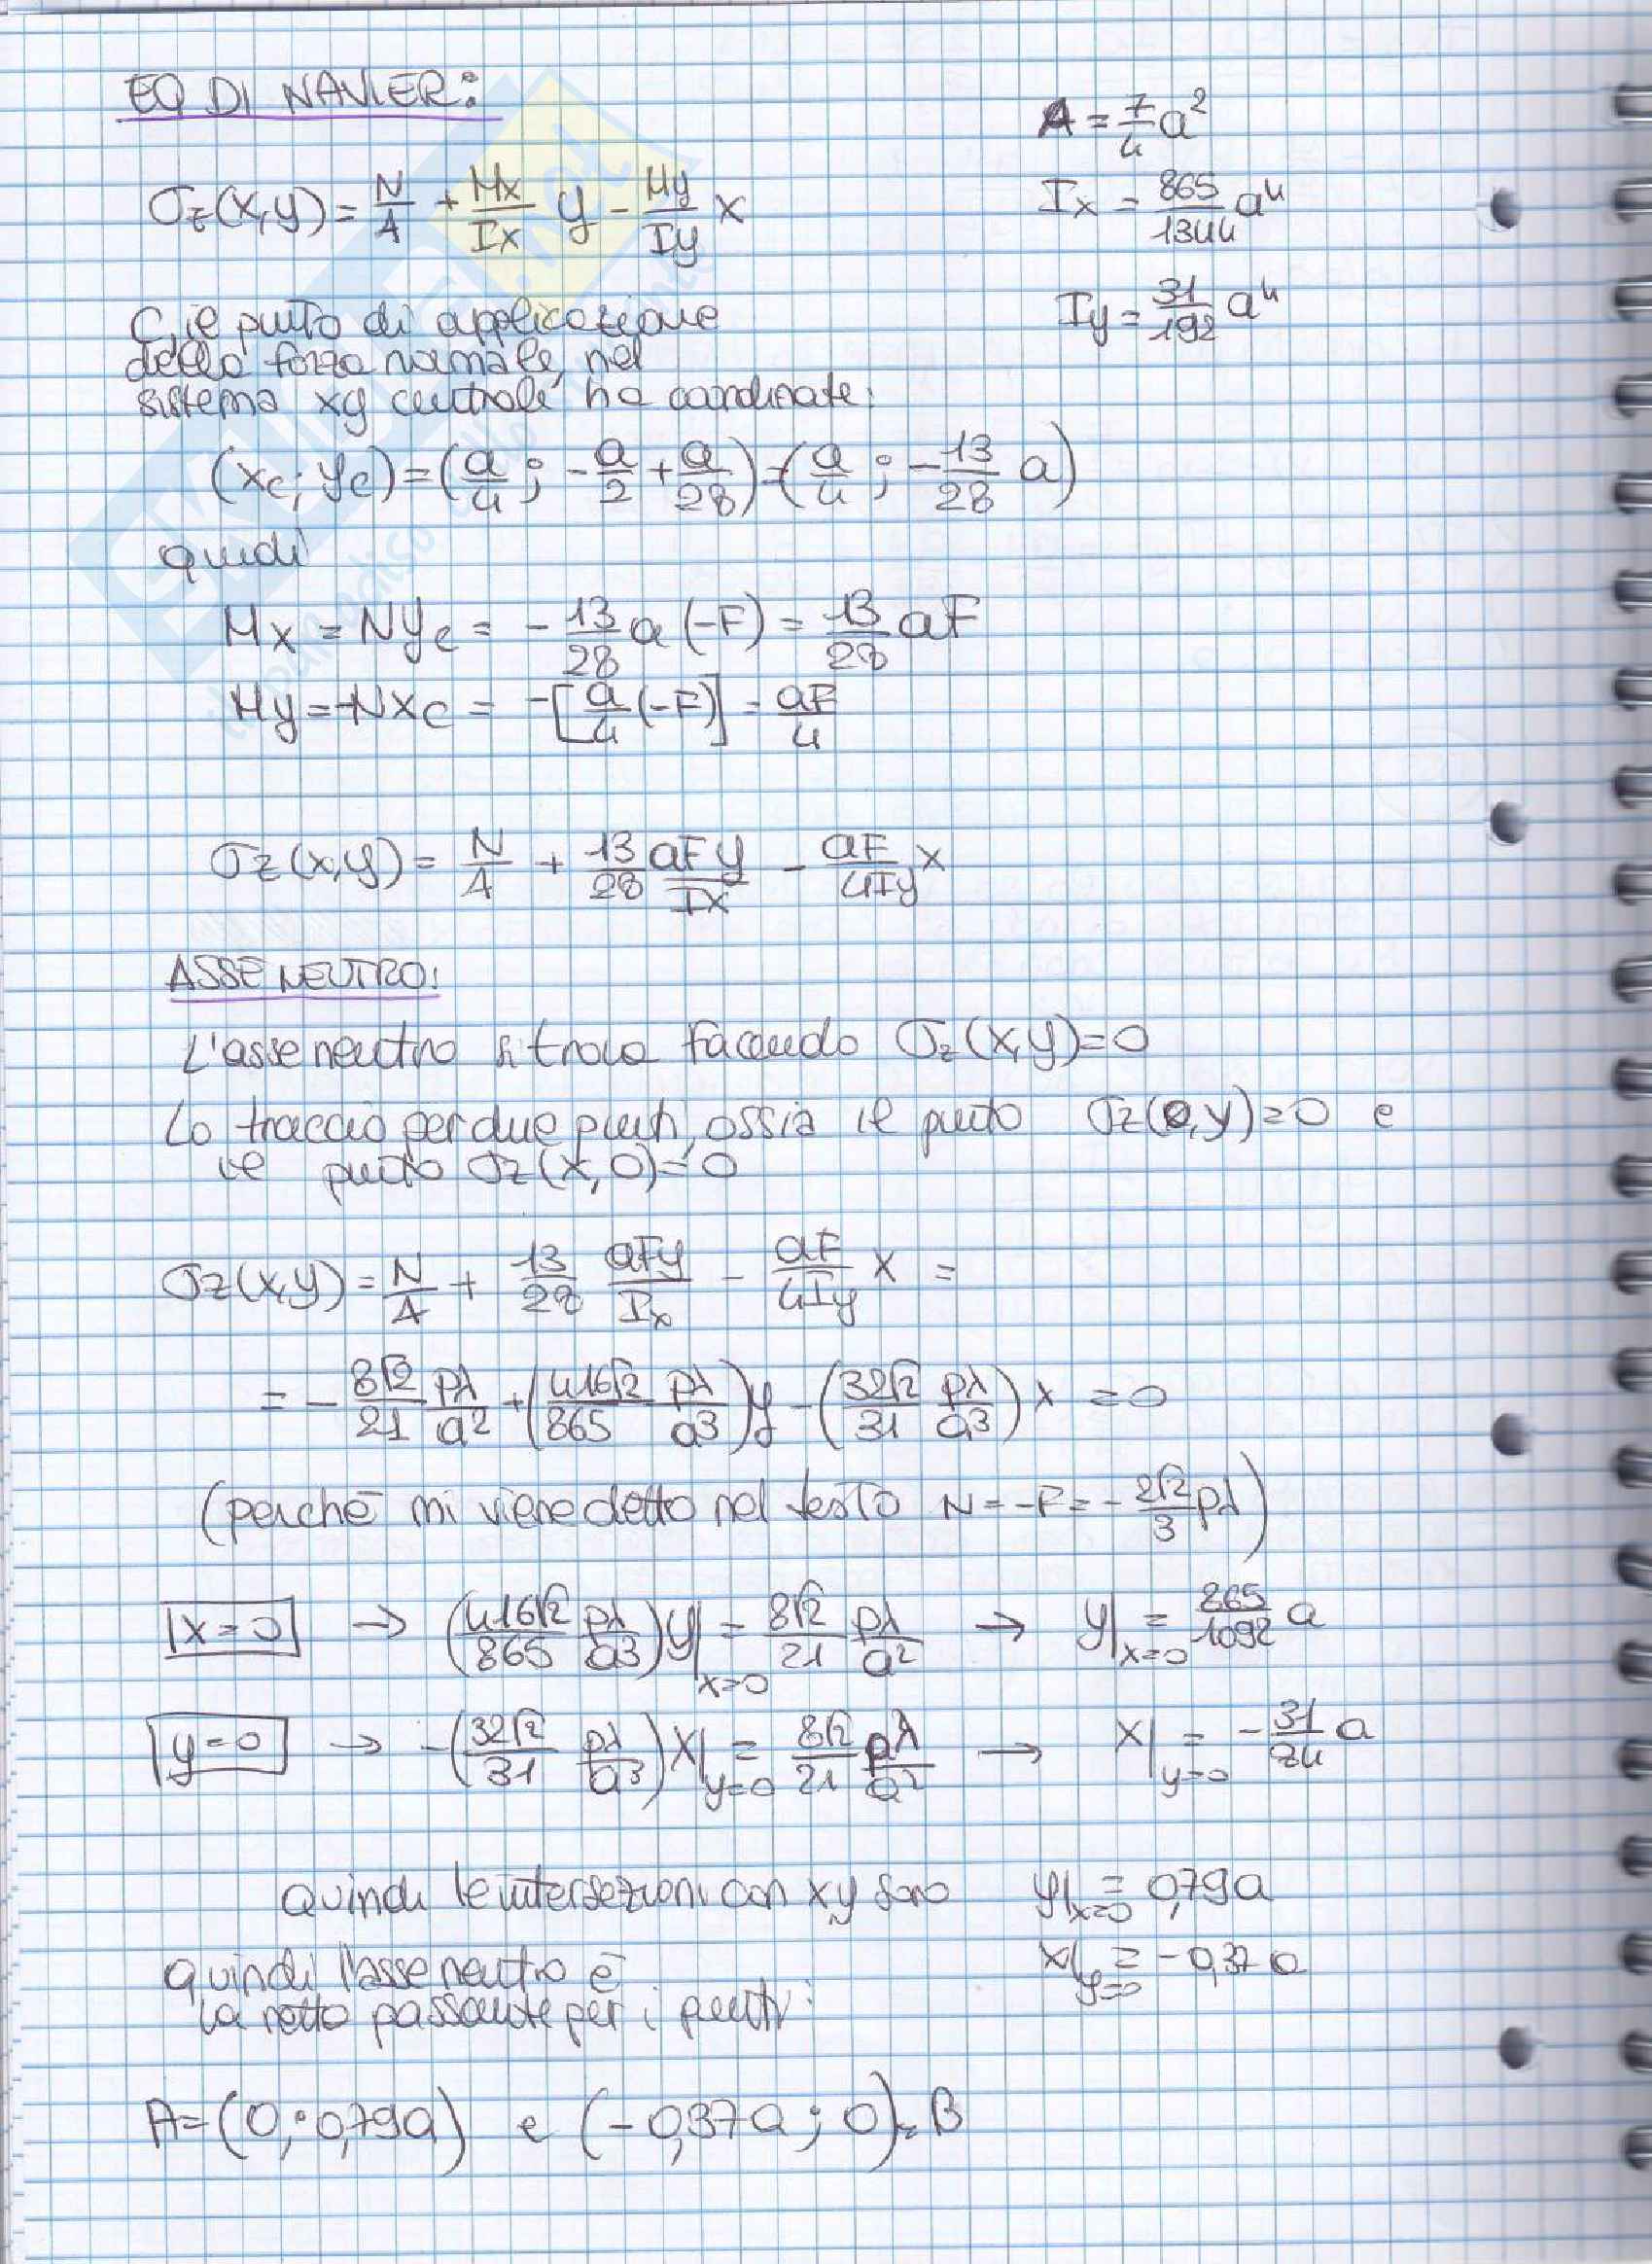 EQ DI NAVIER:
A = 7/4 a²
σz(x,y) = N/A + Mx/Ix y - My/Iy x
Ix = 865/1344 a⁴
Iy = 31/192 a⁴
C, il punto di applicazione
della forza normale, nel
sistema xy centrale ha coordinate:
(xc; yc) = (a/4; -a/2 + a/28) = (a/4; -13/28 a)
quindi
Mx = Nyc = -13/28 a (-F) = 13/28 aF
My = -Nxc = -[a/4 (-F)] = aF/4
σz(x,y) = N/A + 13/28 aFy/Ix - aF/4Iy x
ASSE NEUTRO:
L'asse neutro si trova facendo σz(x,y)=0
Lo traccio per due punti, ossia il punto σz(0,y)=0 e
il punto σz(x,0)=0
σz(x,y) = N/A + 13/28 aFy/Ix - aF/4Iy x =
= - 8√2/21 pλ/a² + (416√2/865 pλ/a³)y - (32√2/31 pλ/a³)x = 0
(perché mi viene detto nel testo N = -F = - 2√2/3 pλ)
x=0 → (416√2/865 pλ/a³)y|x=0 = 8√2/21 pλ/a² → y|x=0 = 865/1092 a
y=0 → -(32√2/31 pλ/a³)x|y=0 = 8√2/21 pλ/a² → x|y=0 = -31/84 a
quindi le intersezioni con x,y sono y|x=0 = 0,79a
x|y=0 = -0,37a
quindi l'asse neutro è
la retta passante per i punti:
A=(0; 0,79a) e (-0,37a; 0)=B